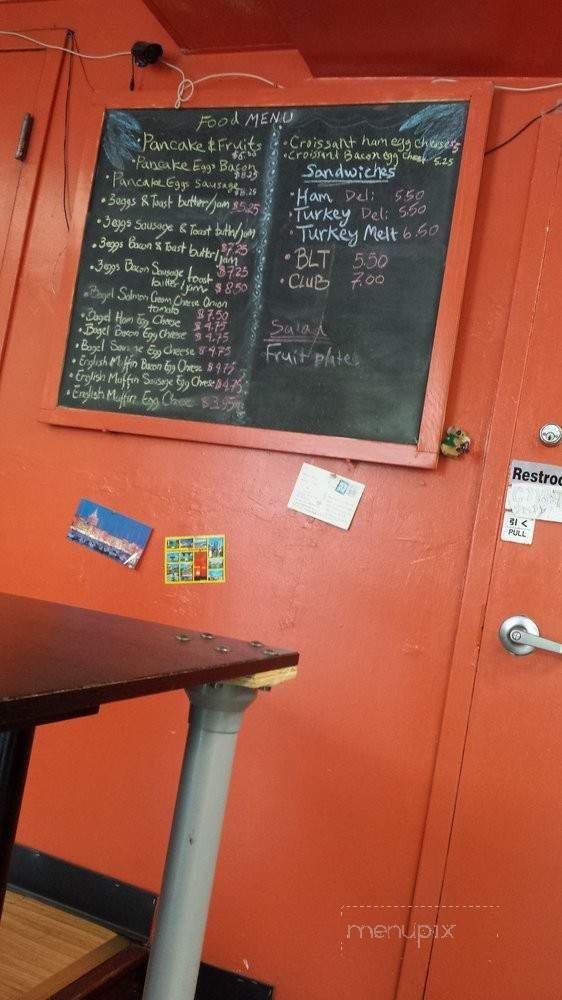 Food MENU
• Pancake & Fruits
• Pancake Eggs Bacon
$8.25
• Pancake Eggs Sausage
$8.25
• 3eggs & Toast butter/jam $5.25
• 3eggs Sausage & Toast buttr/jam
$7.25
• 3eggs Bacon & Toast buttr/jam
$7.25
• 3eggs Bacon Sausage toast
butter/jam $8.50
• Bagel Salmon Cream Cheese Onion
tomato $7.50
• Bagel Ham Egg Cheese $4.75
• Bagel Bacon Egg Cheese $4.75
• Bagel Sausage Egg Cheese $4.75
• English Muffin Bacon Egg Cheese $4.75
• English Muffin Sausage Egg Cheese $4.75
• English Muffin Egg Cheese $3.95
• Croissant ham egg cheese
• Croissant Bacon egg cheese 5.25
Sandwiches
• Ham Deli 5.50
• Turkey Deli 5.50
• Turkey Melt 6.50
• BLT 5.50
• CLUB 7.00
Salad
Fruit plates
Restroo
PULL
menupix